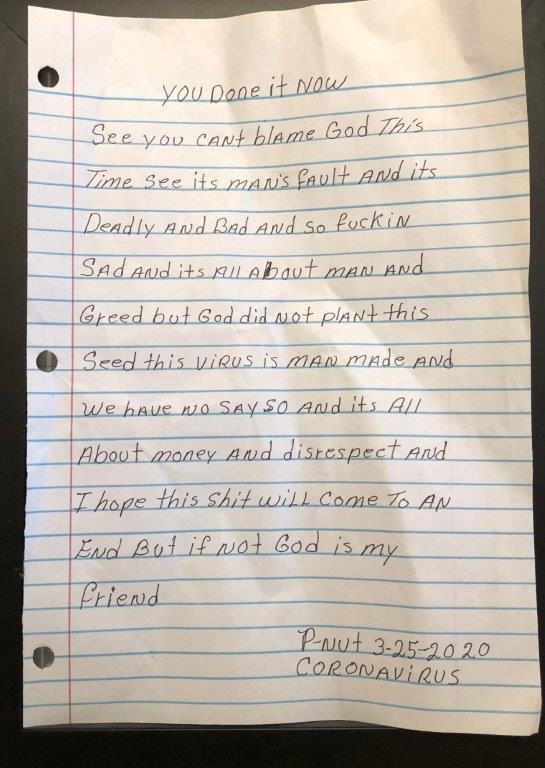 YOU Done it NOW
See you CANt blAme God This
Time See its mAN's fAult ANd its
DeAdly ANd BAd ANd so fuckiN
SAd ANd its All About mAN ANd
Greed but God did Not plANt this
Seed this viRus is mAN mAde ANd
We hAve NO SAY SO ANd its All
About money ANd disrespect ANd
I hope this shit will Come To AN
ENd But if Not God is my
friend
P-Nut 3-25-2020
CORONAViRUS